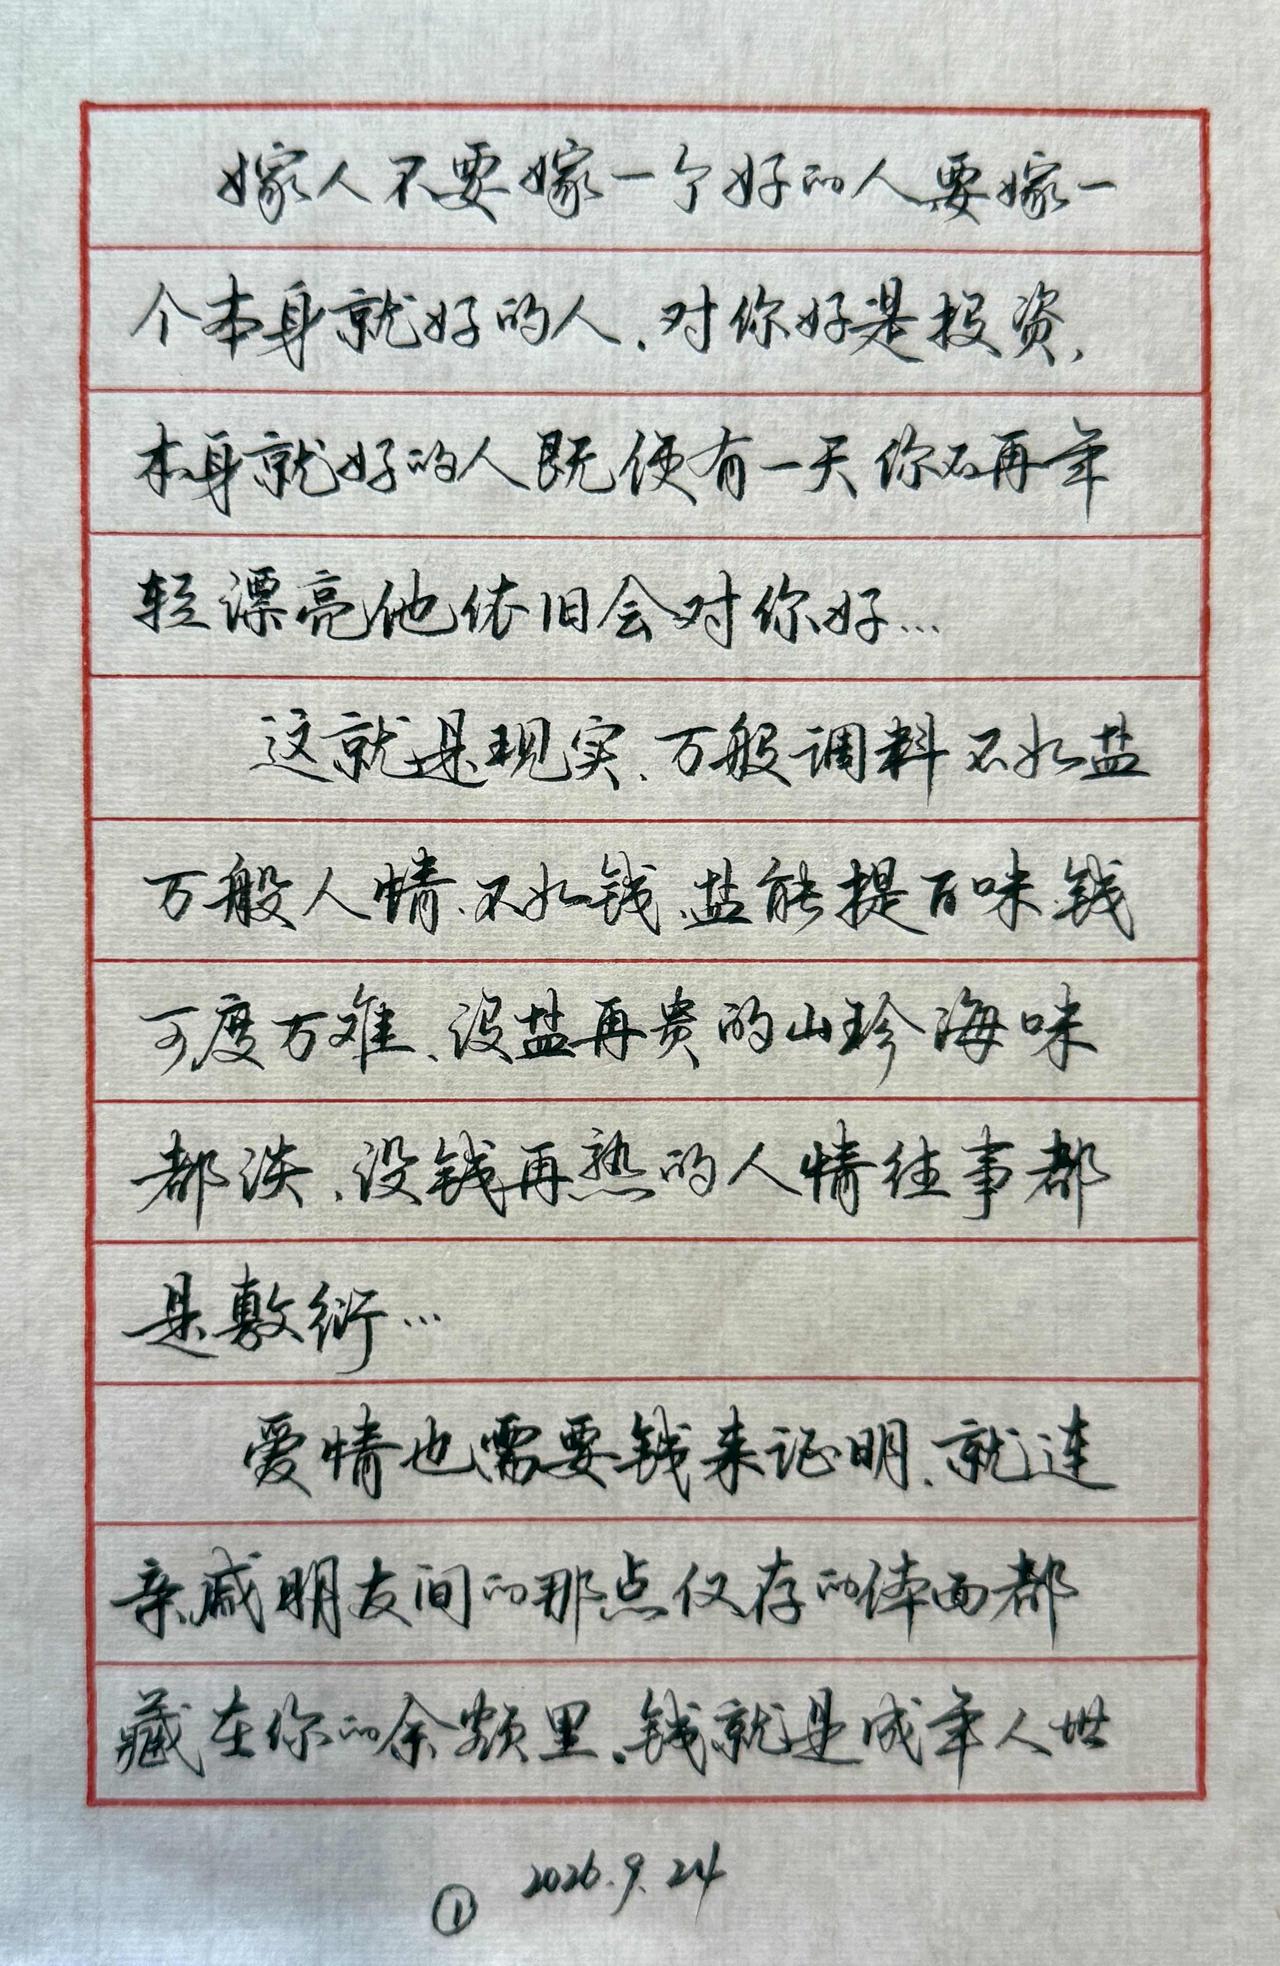 嫁人不要嫁一个好的人要嫁一
个本身就好的人、对你好是投资,
本身就好的人既便有一天你不再年
轻漂亮他依旧会对你好…
这就是现实、万般调料不如盐
万般人情、不如钱、盐能提百味、钱
可度万难、没盐再贵的山珍海味
都淡、没钱再熟的人情往事都
是敷衍…
爱情也需要钱来证明、就连
亲戚朋友间的那点仅存的体面都
藏在你的余额里、钱就是成年人世
2026.9.24
①